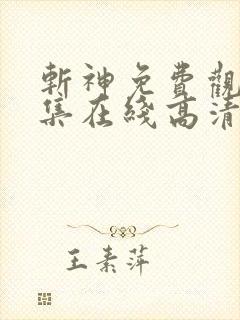 斬神免費觀
集在綫高清
王素萍